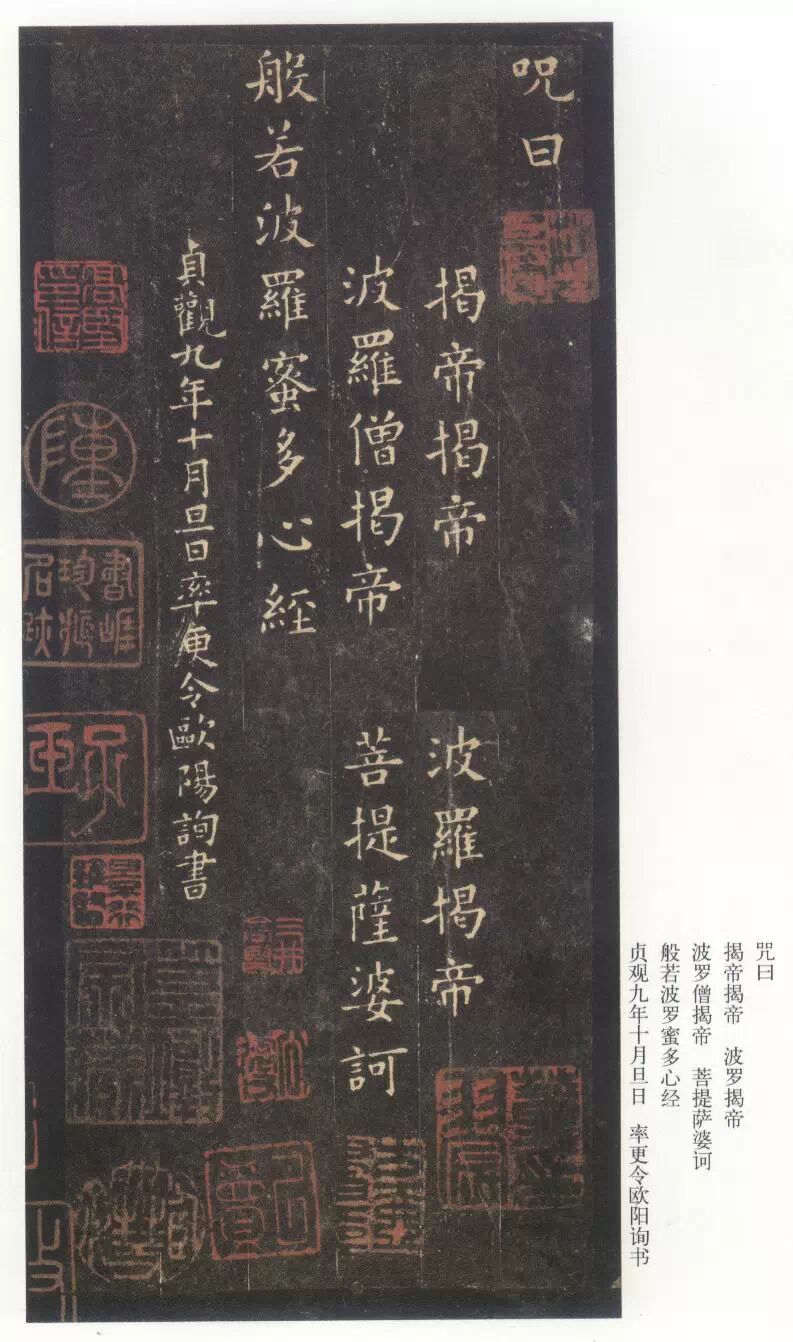 咒曰
揭帝揭帝 波羅揭帝
波羅僧揭帝 菩提薩婆訶
般若波羅蜜多心經
貞觀九年十月旦日率更令歐陽詢書
咒曰
揭帝揭帝 波罗揭帝
波罗僧揭帝 菩提萨婆诃
般若波罗蜜多心经
贞观九年十月旦日 率更令欧阳询书